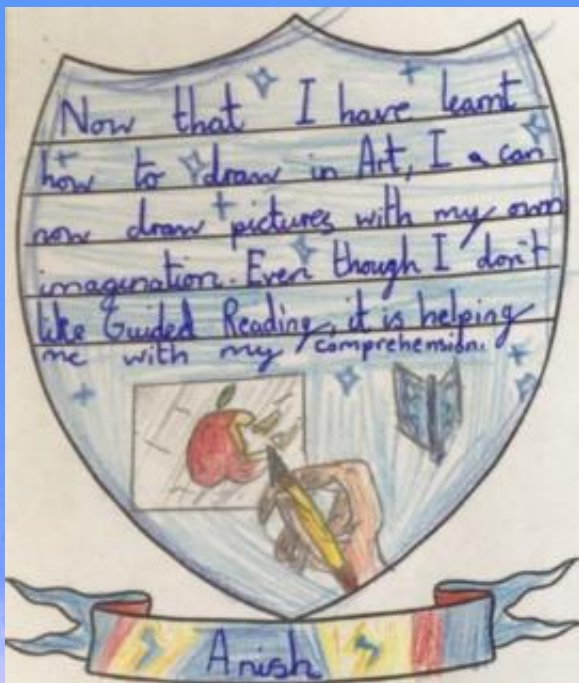 Now that I have learnt
how to draw in Art, I a can
now draw pictures with my own
imagination. Even though I don't
like Guided Reading, it is helping
me with my comprehension.
Anish